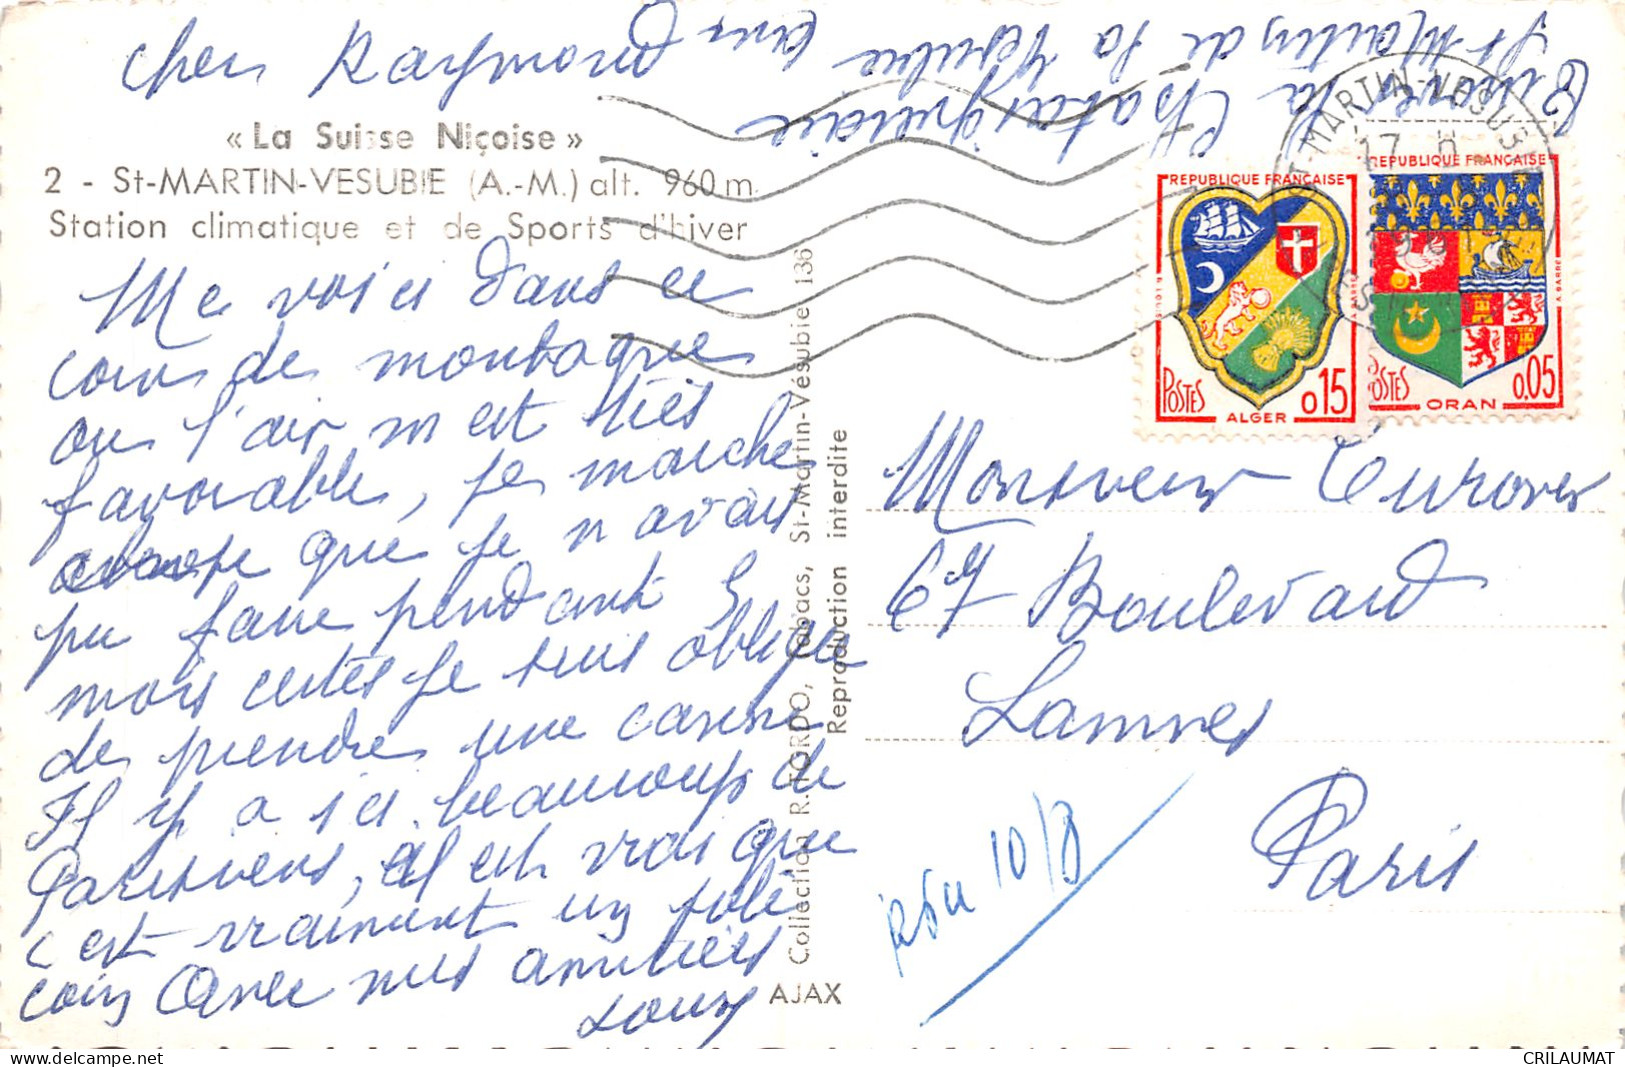 Cher Raymond
« La Suisse Niçoise »
2 - St-MARTIN-VESUBIE (A.-M.) alt. 960 m
Station climatique et de Sports d'hiver
Me voici dans ce
coin de montagne
ou l'air m est très
favorable, je marche
chose que je n avais
pu faire pendant
mais certes je suis obligée
de prendre une canne
Il y a ici beaucoup de
Parisiens, il est vrai que
c est vraiment un joli
coin Avec mes amitiés
Louis
la Chataigneraie
St Martin de la Vesubie
Collection R. TORDO, Tabacs, St-Martin-Vésubie 136
Reproduction interdite
AJAX
ST-MARTIN-VESUBIE
17 H
REPUBLIQUE FRANÇAISE
POSTES
ALGER
0,15
REPUBLIQUE FRANÇAISE
POSTES
ORAN
0,05
Monsieur
67 Boulevard
Lannes
Paris
10/8
CRILAUMAT